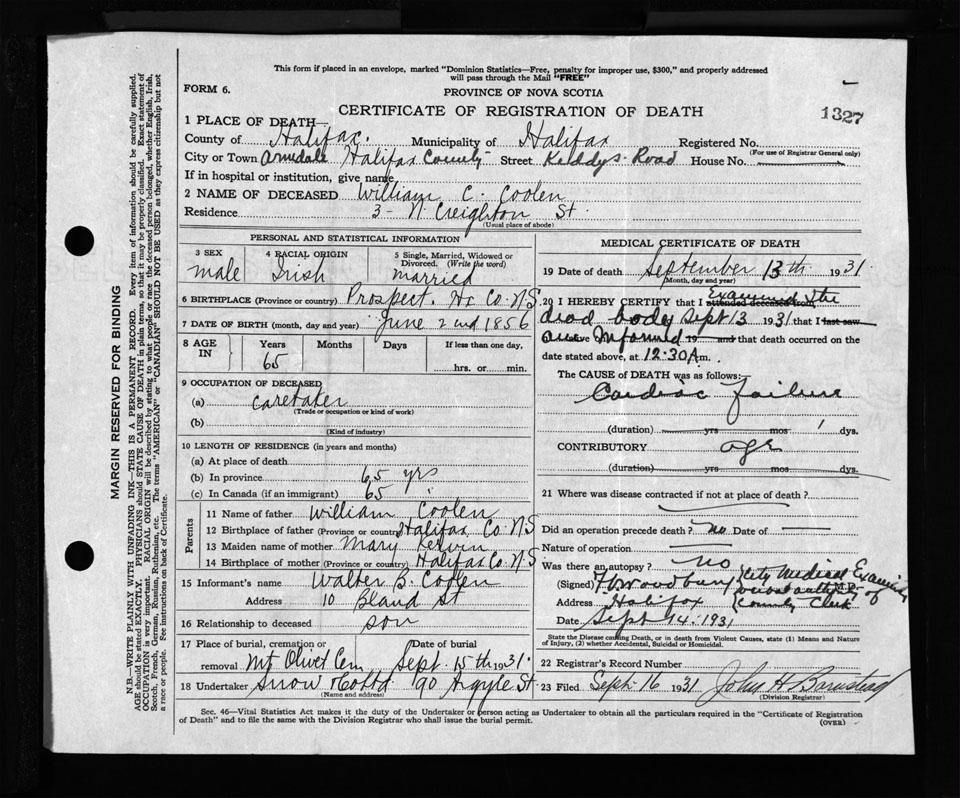 This form if placed in an envelope, marked "Dominion Statistics—Free, penalty for improper use, $300," and properly addressed
will pass through the Mail "FREE"
FORM 6.
PROVINCE OF NOVA SCOTIA
CERTIFICATE OF REGISTRATION OF DEATH
1327
1 PLACE OF DEATH—
County of Halifax. Municipality of Halifax Registered No.
(For use of Registrar General only)
City or Town Armdale Halifax County Street Keddys Road House No.
If in hospital or institution, give name
2 NAME OF DECEASED William C. Coolen
Residence 3- N. Creighton St
(Usual place of abode)
PERSONAL AND STATISTICAL INFORMATION
3 SEX
male
4 RACIAL ORIGIN
Irish
5 Single, Married, Widowed or
Divorced. (Write the word)
married
6 BIRTHPLACE (Province or country) Prospect. Hx Co. N.S
7 DATE OF BIRTH (month, day and year) June 2nd 1856
8 AGE
IN
Years Months Days If less than one day,
65
hrs. or min.
9 OCCUPATION OF DECEASED
(a) Caretaker
(Trade or occupation or kind of work)
(b)
(Kind of industry)
10 LENGTH OF RESIDENCE (in years and months)
(a) At place of death
(b) In province 65 yrs
(c) In Canada (if an immigrant) 65 "
Parents
11 Name of father William Coolen
12 Birthplace of father (Province or country) Halifax Co. N.S
13 Maiden name of mother Mary
14 Birthplace of mother (Province or country) Halifax Co. N.S
15 Informant's name Walter B. Coolen
Address 10 Bland St
16 Relationship to deceased son
17 Place of burial, cremation or Date of burial
removal Mt Olivet Cem Sept. 15th 1931.
18 Undertaker Snow & Co Ltd 90 Argyle St
(Name and address)
MEDICAL CERTIFICATE OF DEATH
19 Date of death September 13th 1931.
(Month, day and year)
20 I HEREBY CERTIFY that I attended deceased from Examined the
dead body Sept 13 1931 that I last saw
alive Informed 19 and that death occurred on the
date stated above, at 12:30 A m.
The CAUSE of DEATH was as follows:—
Cardiac Failure
(duration) yrs mos 1 dys.
CONTRIBUTORY age
(duration) yrs mos dys.
21 Where was disease contracted if not at place of death?
Did an operation precede death? no Date of
Nature of operation
Was there an autopsy? no
(Signed) Woodbury M.D.
City Medical Examiner
County Clerk
Address Halifax
Date Sept 14. 1931
State the Disease causing Death, or in death from Violent Causes, state (1) Means and Nature
of Injury, (2) whether Accidental, Suicidal or Homicidal.
22 Registrar's Record Number
23 Filed Sept. 16 1931 John H Barnstead
(Division Registrar)
Sec. 46—Vital Statistics Act makes it the duty of the Undertaker or person acting as Undertaker to obtain all the particulars required in the "Certificate of Registration
of Death" and to file the same with the Division Registrar who shall issue the burial permit.
(OVER)
MARGIN RESERVED FOR BINDING
N.B.—WRITE PLAINLY WITH UNFADING INK—THIS IS A PERMANENT RECORD. Every item of information should be carefully supplied.
AGE should be stated EXACTLY. PHYSICIANS should STATE CAUSE OF DEATH in plain terms, so that it may be properly classified. Exact statement of
OCCUPATION is very important. RACIAL ORIGIN will be described by stating to what people or race the deceased person belonged, whether English, Irish,
Scotch, French, German, Russian, Ruthenian, etc. The terms "AMERICAN" or "CANADIAN" SHOULD NOT BE USED as they express citizenship but not
a race or people. See instructions on back of Certificate.